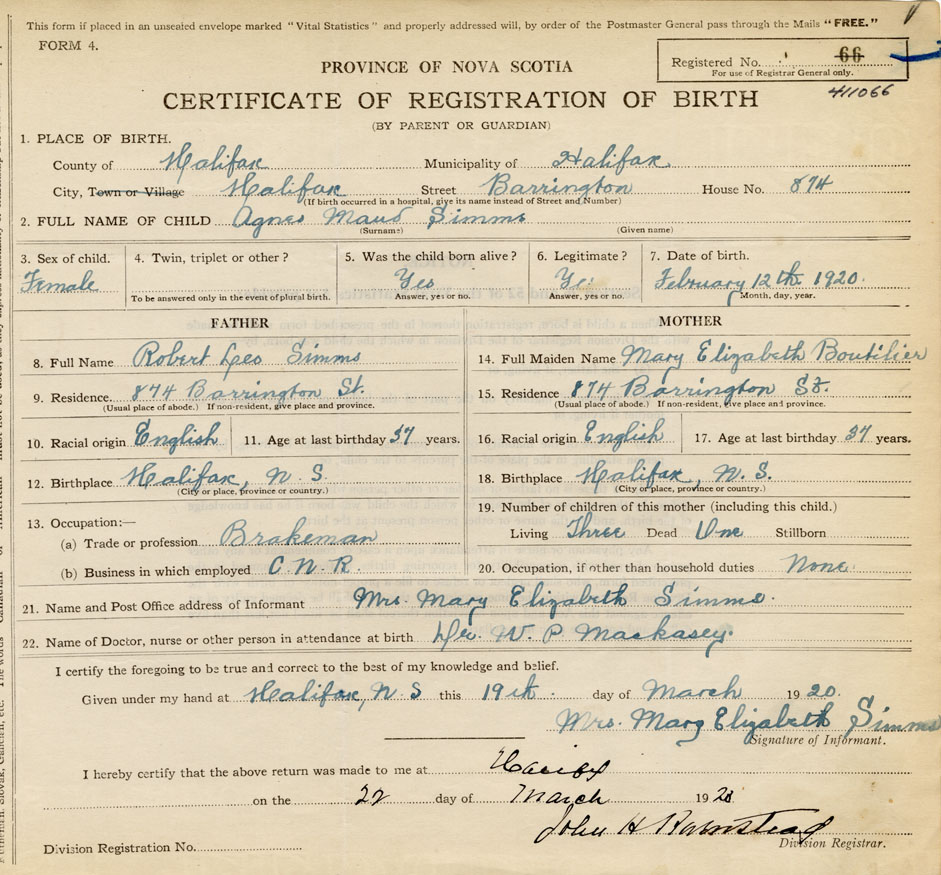 This form if placed in an unsealed envelope marked "Vital Statistics" and properly addressed will, by order of the Postmaster General pass through the Mails "FREE."
FORM 4.
Registered No. 66
For use of Registrar General only.
411066
PROVINCE OF NOVA SCOTIA
CERTIFICATE OF REGISTRATION OF BIRTH
(BY PARENT OR GUARDIAN)
1. PLACE OF BIRTH.
County of Halifax Municipality of Halifax
City, Town or Village Halifax Street Barrington House No. 874
(If birth occurred in a hospital, give its name instead of Street and Number)
2. FULL NAME OF CHILD Agnes Maud Simms
(Surname) (Given name)
3. Sex of child. 4. Twin, triplet or other? 5. Was the child born alive? 6. Legitimate? 7. Date of birth.
Female Yes Yes February 12th 1920
To be answered only in the event of plural birth. Answer, yes or no. Answer, yes or no. Month, day, year.
FATHER
8. Full Name Robert Leo Simms
9. Residence 874 Barrington St.
(Usual place of abode.) If non-resident, give place and province.
10. Racial origin English 11. Age at last birthday 37 years.
12. Birthplace Halifax, N. S.
(City or place, province or country.)
13. Occupation:—
(a) Trade or profession Brakeman
(b) Business in which employed C.N.R.
MOTHER
14. Full Maiden Name Mary Elizabeth Boutilier
15. Residence 874 Barrington St.
(Usual place of abode.) If non-resident, give place and province.
16. Racial origin English 17. Age at last birthday 37 years.
18. Birthplace Halifax, N. S.
(City or place, province or country.)
19. Number of children of this mother (including this child.)
Living Three Dead One Stillborn
20. Occupation, if other than household duties None
21. Name and Post Office address of Informant Mrs. Mary Elizabeth Simms.
22. Name of Doctor, nurse or other person in attendance at birth Dr. W. P. Mackasey.
I certify the foregoing to be true and correct to the best of my knowledge and belief.
Given under my hand at Halifax, N. S this 19th day of March 1920.
Mrs. Mary Elizabeth Simms
Signature of Informant.
I hereby certify that the above return was made to me at
on the 22 day of March 1920
John H
Division Registrar.
Division Registration No.